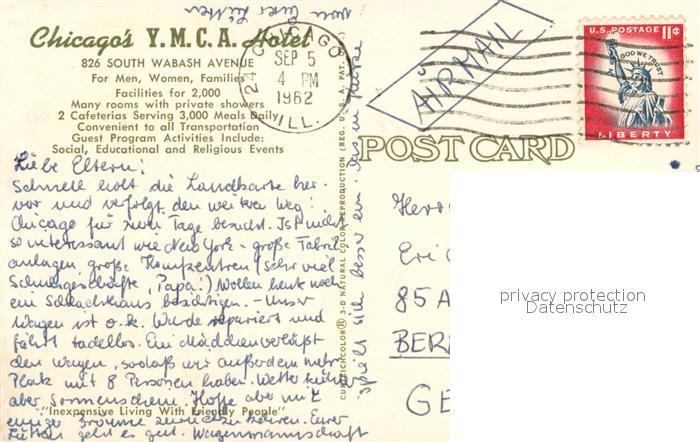 Chicago's Y.M.C.A. Hotel
826 SOUTH WABASH AVENUE
For Men, Women, Families
Facilities for 2,000
Many rooms with private showers
2 Cafeterias Serving 3,000 Meals Daily
Convenient to all Transportation
Guest Program Activities Include:
Social, Educational and Religious Events
CHICAGO
SEP 5
4 PM
1962
ILL.
AIRMAIL
U.S. POSTAGE 11¢
IN GOD WE TRUST
LIBERTY
POST CARD
Liebe Eltern!
Schnell holt die Landkarte her-
vor und verfolgt den weiteren Weg!
Chicago für zwei Tage besucht. Ist nicht
so interessant wie New York - große Fabrik
anlagen, große
(sehr viel
Papa!) Wollen heute noch
ein Schlachthaus besichtigen. - Unser
Wagen ist o.k. Wurde repariert und
fährt tadellos. Ein Mädchen verläßt
den Wagen, sodaß wir außerdem mehr
Platz mit 8 Personen haben. Wetter kühler
aber Sonnenschein. Hoffe aber mit
einiger Bräune zurückzukehren. Eurer
geht es gut. Wagenmannschaft
spielt sich besser ein. Das in Kürze
von Eurer
"Inexpensive Living With Friendly People"
CURTEICHCOLOR ® 3-D NATURAL COLOR REPRODUCTION (REG. U.S.A. PAT. OFF.)
Herr
Eri
85 A
BER
GE
privacy protection
Datenschutz